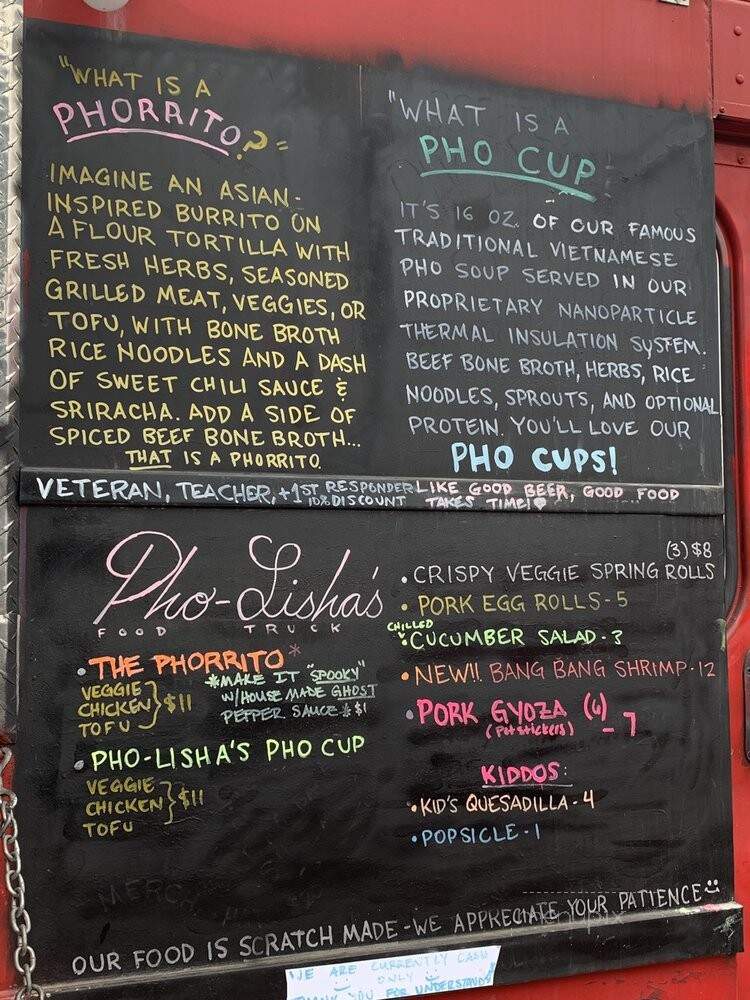 "WHAT IS A
PHORRITO?"
IMAGINE AN ASIAN-
INSPIRED BURRITO ON
A FLOUR TORTILLA WITH
FRESH HERBS, SEASONED
GRILLED MEAT, VEGGIES, OR
TOFU, WITH BONE BROTH
RICE NOODLES AND A DASH
OF SWEET CHILI SAUCE &
SRIRACHA. ADD A SIDE OF
SPICED BEEF BONE BROTH...
THAT IS A PHORRITO.
"WHAT IS A
PHO CUP
IT'S 16 OZ. OF OUR FAMOUS
TRADITIONAL VIETNAMESE
PHO SOUP SERVED IN OUR
PROPRIETARY NANOPARTICLE
THERMAL INSULATION SYSTEM.
BEEF BONE BROTH, HERBS, RICE
NOODLES, SPROUTS, AND OPTIONAL
PROTEIN. YOU'LL LOVE OUR
PHO CUPS!
VETERAN, TEACHER, +1ST RESPONDER
10% DISCOUNT
LIKE GOOD BEER, GOOD FOOD
TAKES TIME!
Pho-Lisha's
FOOD TRUCK
• THE PHORRITO*
VEGGIE
CHICKEN } $11
TOFU
*MAKE IT "SPOOKY"
W/HOUSE MADE GHOST
PEPPER SAUCE * $1
• PHO-LISHA'S PHO CUP
VEGGIE
CHICKEN } $11
TOFU
(3) $8
• CRISPY VEGGIE SPRING ROLLS
• PORK EGG ROLLS - 5
CHILLED
• CUCUMBER SALAD - 3
• NEW!! BANG BANG SHRIMP - 12
• PORK GYOZA (6)
(Potstickers) - 7
KIDDOS:
• KID'S QUESADILLA - 4
• POPSICLE - 1
OUR FOOD IS SCRATCH MADE - WE APPRECIATE YOUR PATIENCE
WE ARE CURRENTLY CASH
ONLY
THANK YOU FOR UNDERSTANDING